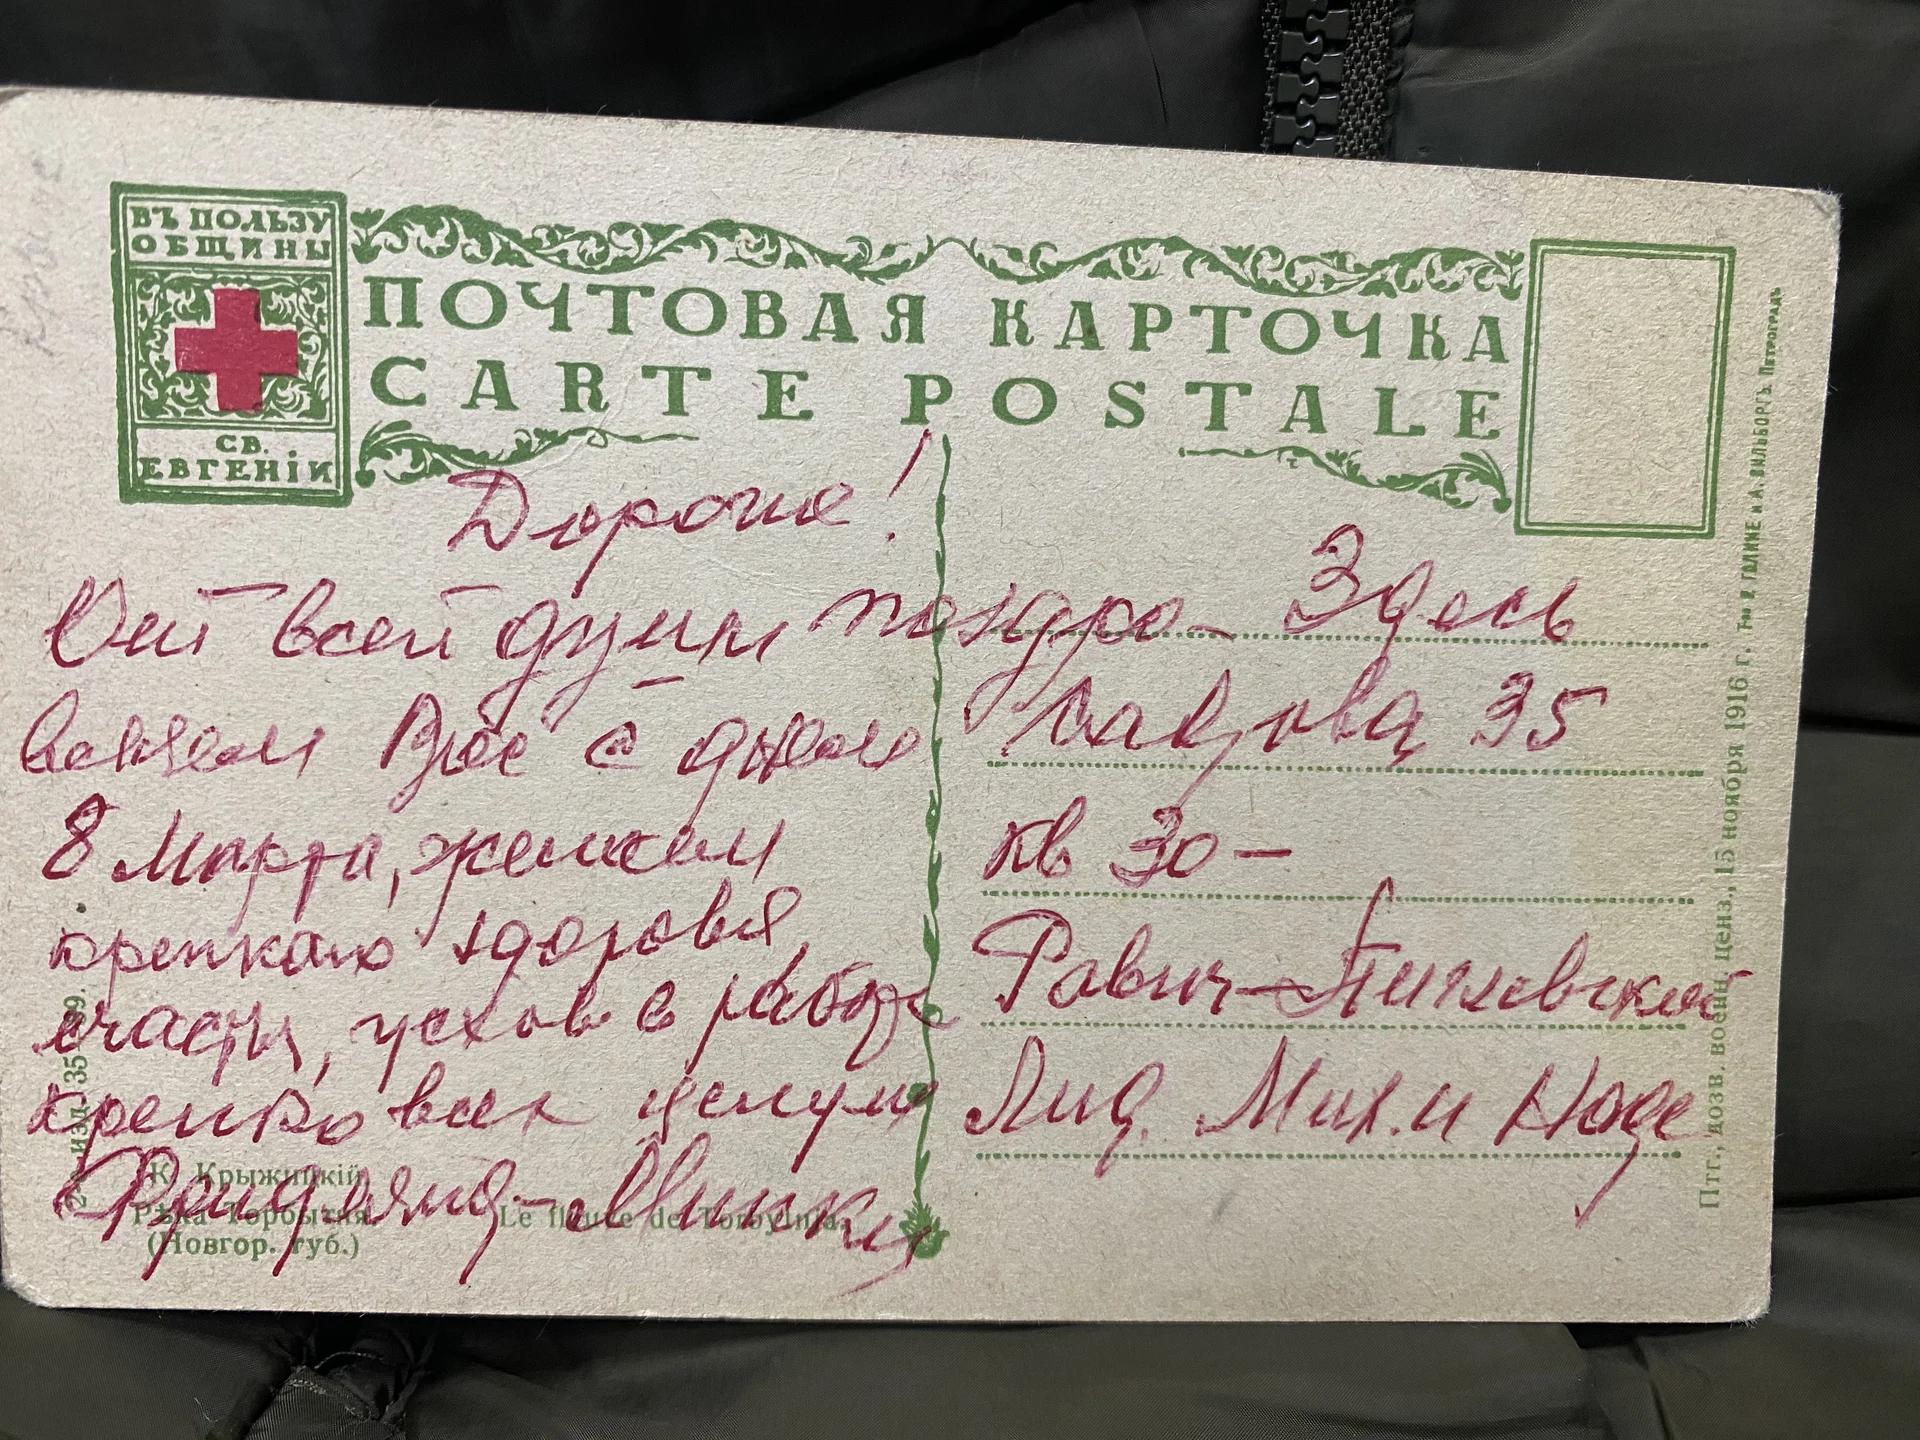 ВЪ ПОЛЬЗУ
ОБЩИНЫ
СВ.
ЕВГЕНІИ
ПОЧТОВАЯ КАРТОЧКА
CARTE POSTALE
Дорогие!
От всей души поздра-
вляем Вас с днем
8 Марта, желаем
крепкого здоровья,
счастья, успехов в работе
крепко всех целуем
К. Крыжицкій
Рѣка Торбытня
(Новгор. губ.)
Le fleuve de Torbytnia
Здесь
35
кв 30 —
Равич-
Лид. Мих. и Наде
Птг., дозв. военн. ценз., 15 ноября 1916 г. Тво Р. ГОЛИКЕ и А. ВИЛЬБОРГЪ. Петроградъ